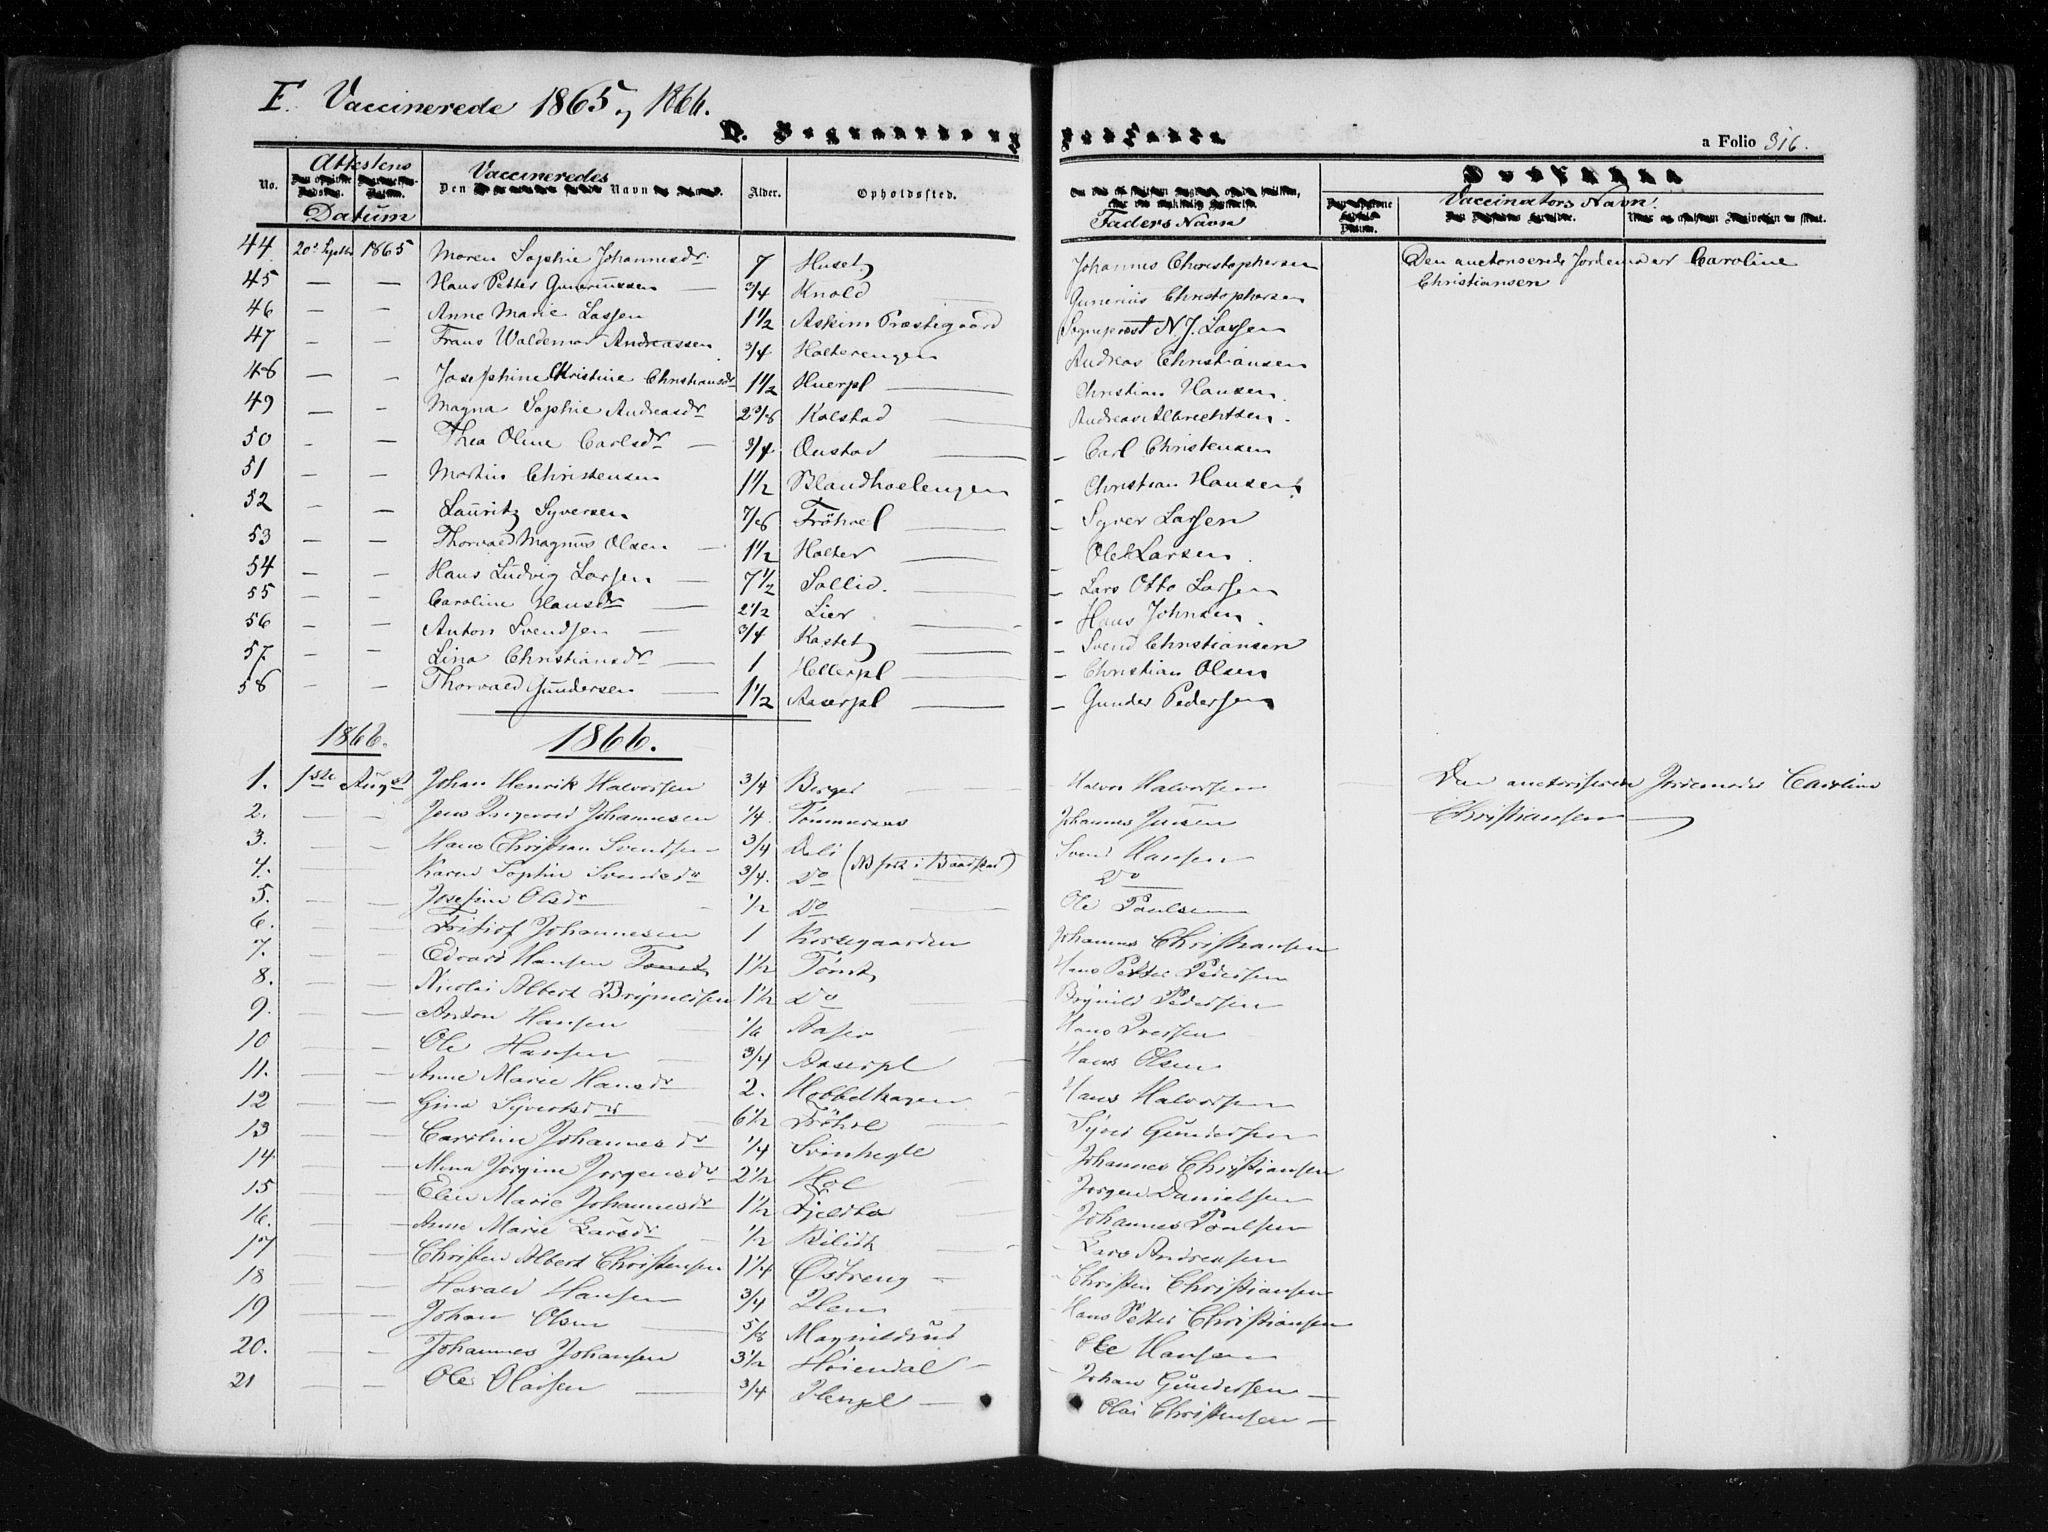 E. Vaccinerede 1865 og 1866.
a Folio 316.
No. Attestens Datum Den Vaccineredes Navn Alder. Opholdssted. Faders Navn Vaccinators Navn.
44. 20de Septbr 1865 Maren Sophie Johannesdr 7 Huset Johannes Christophersen Den auctoriserede Jordemoder Caroline
Christiansen
45 — — Hans Petter Gunerius­sen — 3/4 Knold — Gunerius Christophersen
46 — — Anne Marie Lassen 1 1/2 Askim Præstegaard Sogneprest N. J. Lassen
47 — — Frans Waldemar Andreassen 3/4 Halterengen Andreas Christiansen
48 — — Josephine Christine Christiansdr 1 1/2 Huerpl — Christian Hansen.
49 — — Magna Sophie Andreasdr 2 3/8 Kolstad — Andreas Albrechtsen.
50 — — Thea Oline Carlsdr — 3/4 Onstad — Carl Christensen
51 — — Martin Christensen 1 1/2 — Christian Hansen
52 — — Lauritz Syversen 7/8 Fröhol — — Syver Larsen
53 — — Thorvald Magnus Olsen — 1 1/2 Halter — — Ole Larsen.
54 — — Hans Ludvig Larsen — 7 1/2 Sollid. — — Lars Otto Larsen
55 — — Caroline Hansdr — 2 1/2 Lier — — Hans Johnsen.
56 — — Anton Svendsen — 3/4 Kastet — — Svend Christiansen
57. — — Lina Christiansdr — 1 Hellerpl — — Christian Olsen
58 — — Thorvald Gundersen — 1 1/2 Aaserpl — — Gunder Pedersen
1866. 1866.
1. 1ste August Johan Henrik Halvorsen 3/4 Berger — Halvor Halvorsen — Den auctoriserede Jordemoder Caroline
Christiansen
2. — — Jens Ingevold Johannesen 1/4. Tömmeraas Johannes Jensen
3. — — Hans Christian Svendsen 3/4 (NB født i Baastad) Svend Hansen
4. — — Karen Sophie Svendsdr 3/4. Do Do
5. — — Josefine Olsdr — 1/2 Do Ole Poulsen
6. — — Fritiof Johannesen 1 Korsegaarden Johannes Christiansen
7. — — Edvard Hansen Tomt 1 1/2 Tomt Hans Petter Pedersen
8. — — Nicolai Albert Brynildsen 1 1/2 Do Brynild Pedersen
9. — — Anton Hansen — Aaser — Hans Iversen
10 — — Ole Hansen — 3/4 Aaserpl — Hans Olsen
11. — — Anne Marie Hansdr 2. Hobbelhagen Hans Halvorsen
12 — — Gina Syvertsdr 6 1/2 Fröhol — Syver Gundersen
13 — — Caroline Johannesdr 1/4 Svinhegle Johannes Christiansen
14. — — Mina Jorgine Jorgensdr 2 1/2 Hol Jorgen Danielsen
15 — — Elen Marie Johannesdr 1 1/2 Johannes Poulsen
16. — — Anne Marie Larsdr — 1/2 Bilidt — Lars Andersen
17 — — Christen Albert Christensen 1 1/4 Østreng — Christen Christiansen
18 — — Harald Hansen 3/4 — Hans Petter Christiansen
19 — — Johan Olsen — 5/8 Magnildrud Ole Hansen
20. — — Johannes Johansen 3 1/2 Høiendal — Johan Gundersen —
21 — — Ole Olaisen — 3/4 — Olai Christensen —